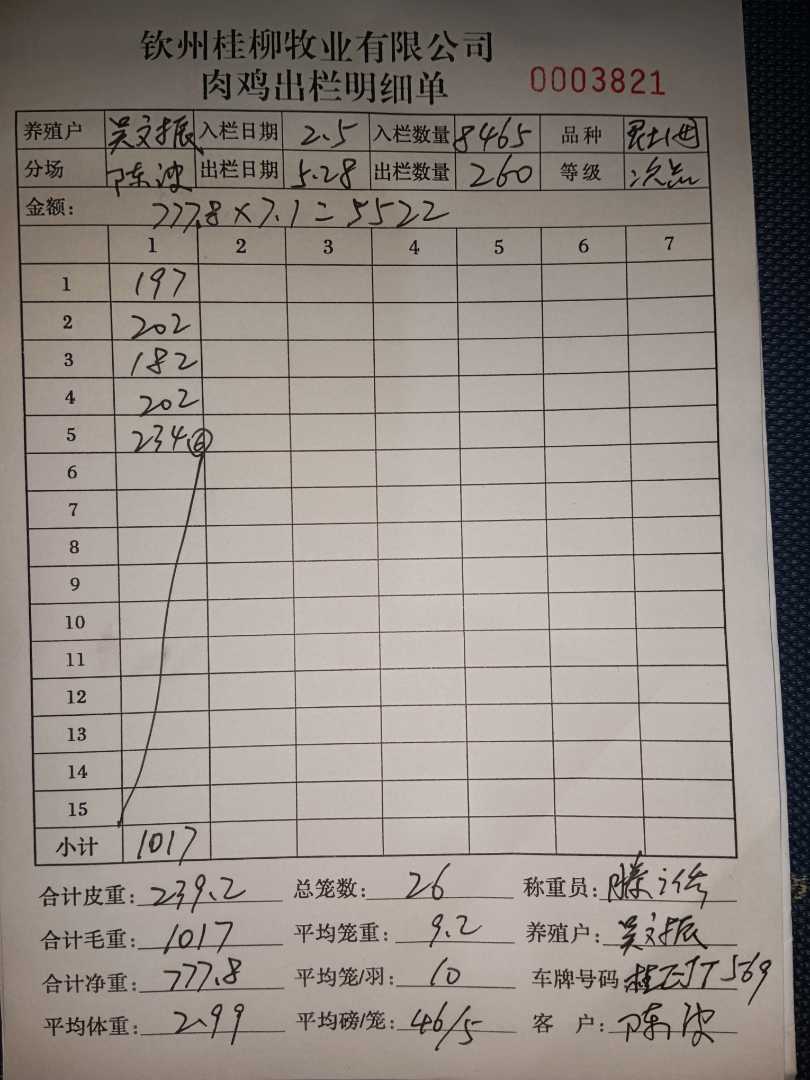 钦州桂柳牧业有限公司
肉鸡出栏明细单 0003821
养殖户 吴文振 入栏日期 2.5 入栏数量 8465 品种
分场 陈波 出栏日期 5.28 出栏数量 260 等级 次品
金额: 777.8×7.1=5522
1 2 3 4 5 6 7
1 197
2 202
3 182
4 202
5 234.⑥
6
7
8
9
10
11
12
13
14
15
小计 1017
合计皮重: 239.2 总笼数: 26 称重员: 滕
合计毛重: 1017 平均笼重: 9.2 养殖户: 吴文振
合计净重: 777.8 平均笼/羽: 10 车牌号码: 桂 JT569
平均体重: 2.99 平均磅/笼: 46/5 客 户: 陈波